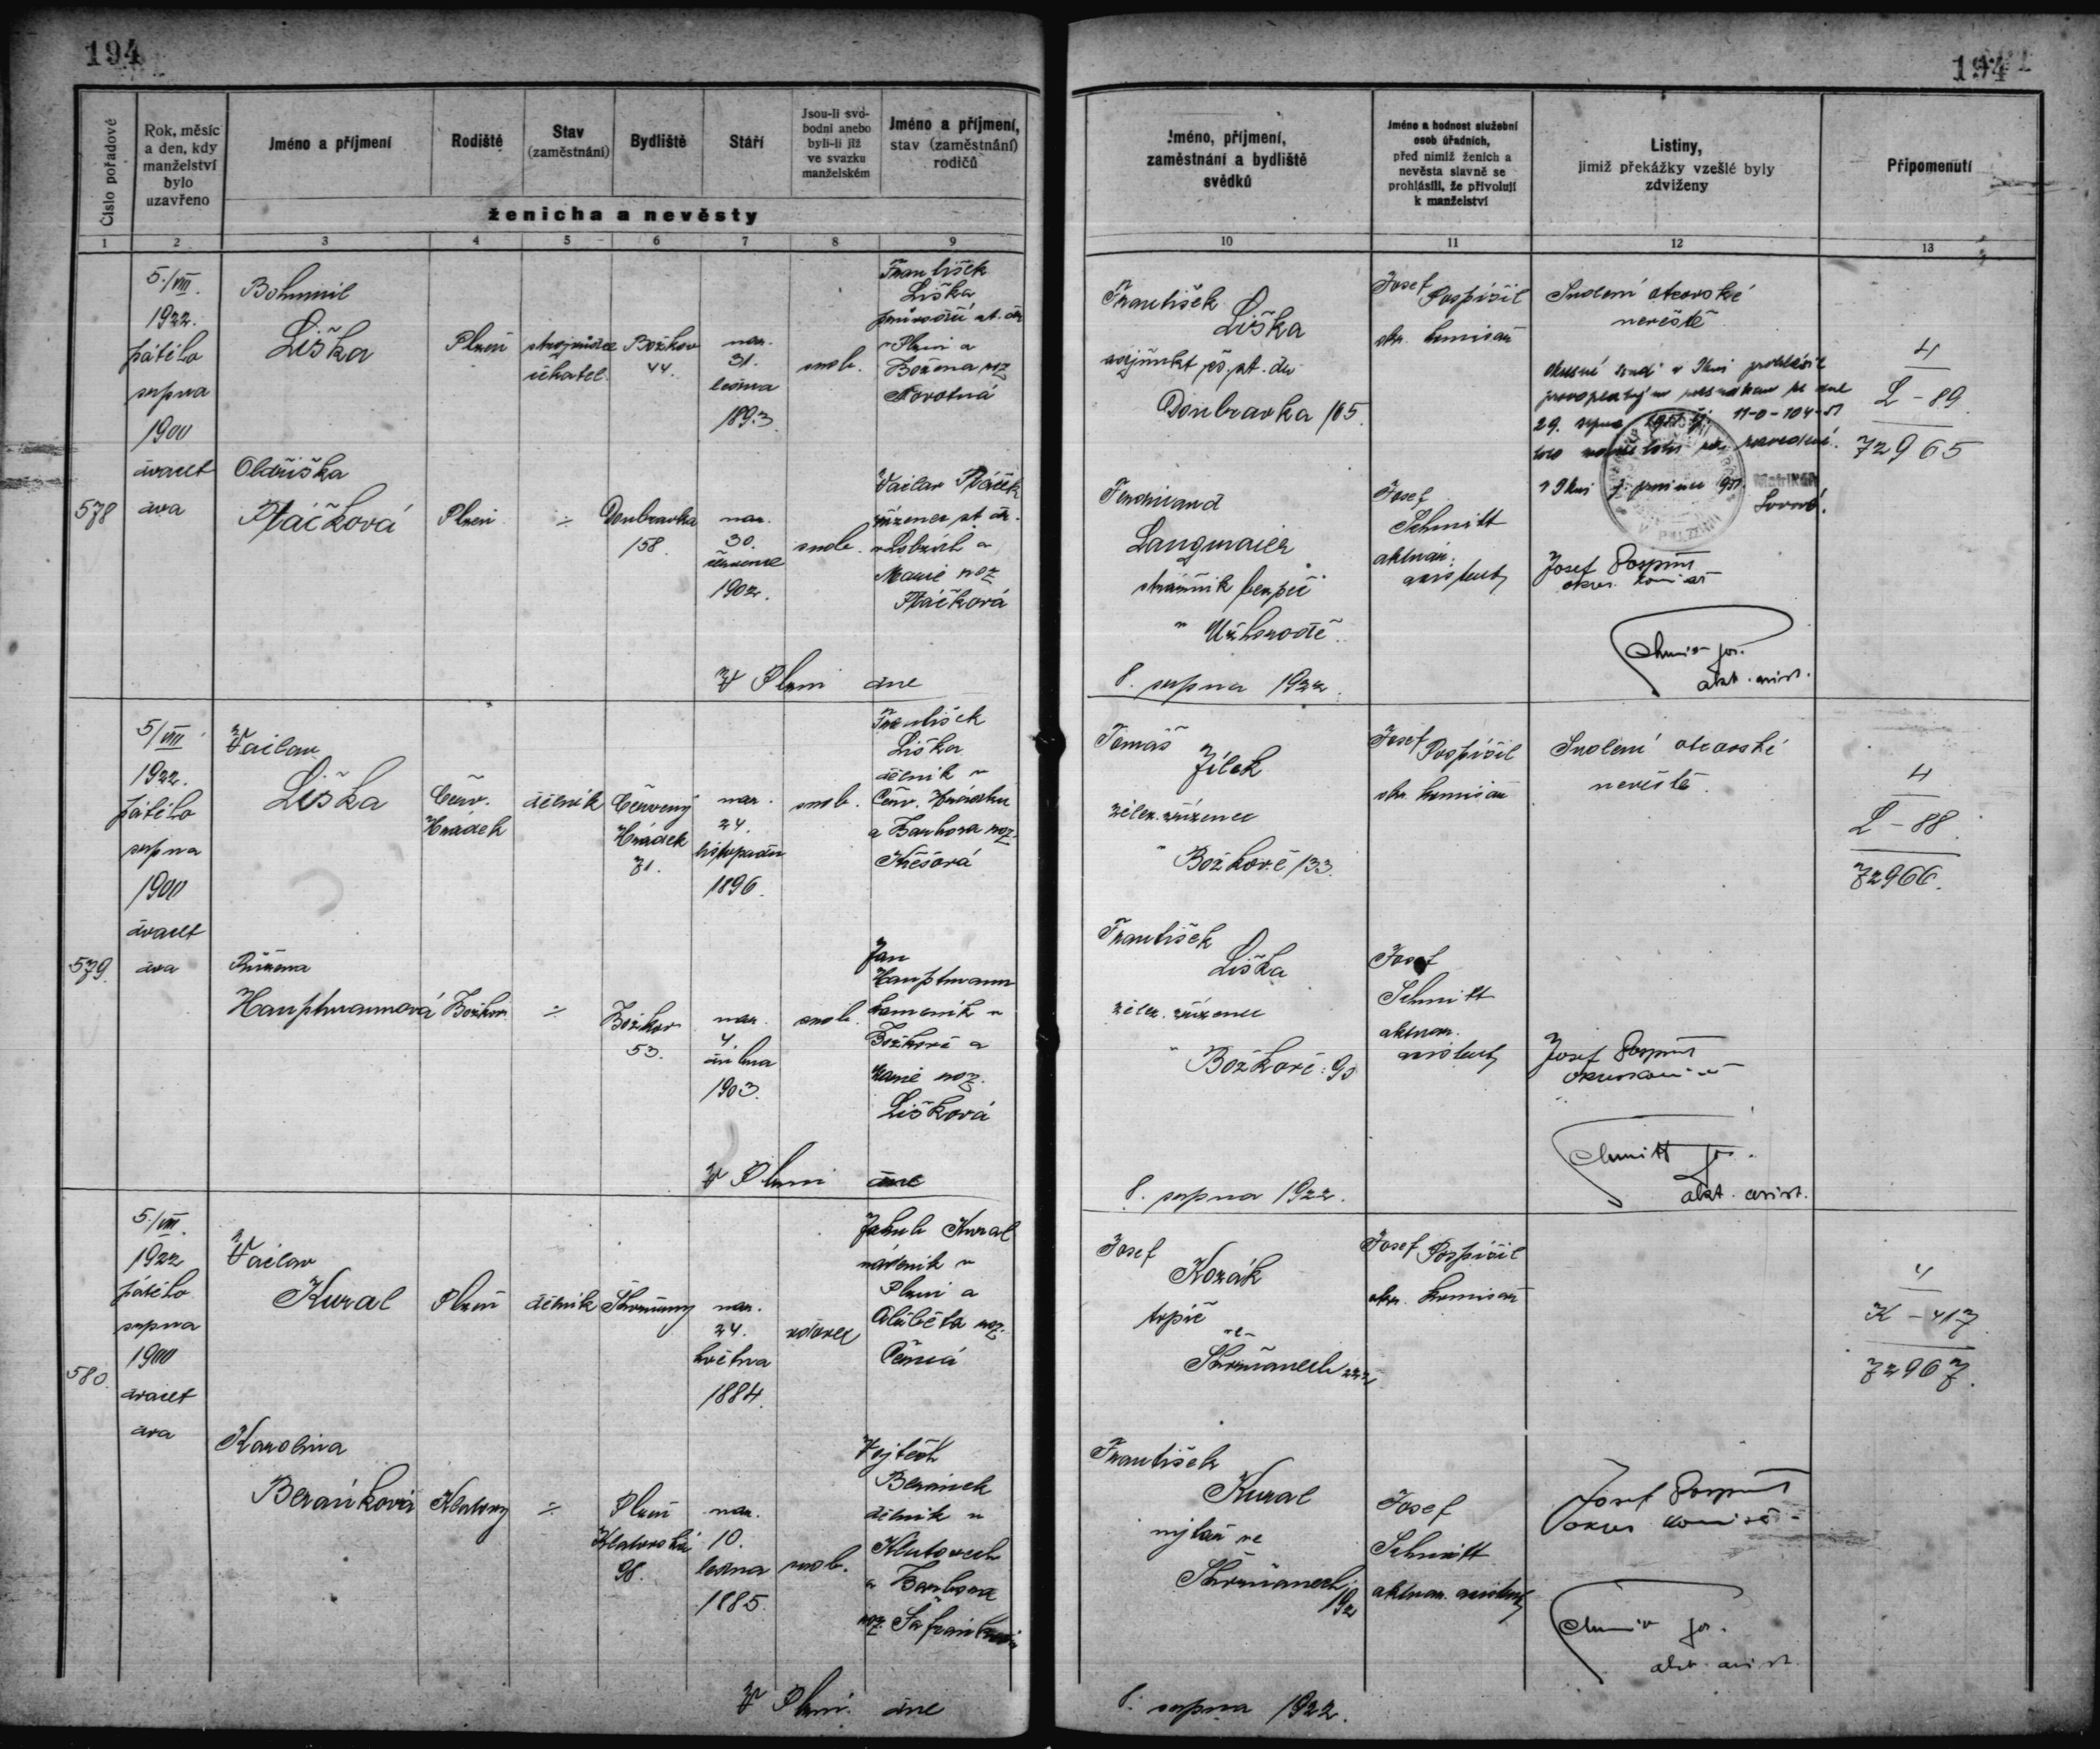 194
194
Číslo pořadové
Rok, měsíc
a den, kdy
manželství
bylo
uzavřeno
Jméno a příjmení
Rodiště
Stav
(zaměstnání)
Bydliště
Stáří
Jsou-li svo-
bodni anebo
byli-li již
ve svazku
manželském
Jméno a příjmení,
stav (zaměstnání)
rodičů
ženicha a nevěsty
Jméno, příjmení,
zaměstnání a bydliště
svědků
Jméno a hodnost služební
osob úředních,
před nimiž ženich a
nevěsta slavně se
prohlásili, že přivolují
k manželství
Listiny,
jimiž překážky vzešlé byly
zdviženy
Připomenutí
1 2 3 4 5 6 7 8 9 10 11 12 13
578
5./VIII.
1922.
pátého
srpna
1900
dvacet
dva
Bohumil
Liška
Plzeň
strojvůdce
čekatel
Božkov
44.
nar.
31.
ledna
1893.
svob.
František
Liška
průvodčí st. dr.
v Plzni a
Božena roz.
Novotná
Oldřiška
Ptáčková
Plzeň
÷
Doubravka
158.
nar.
30.
července
1902.
svob.
Václav Ptáček
zřízenec st. dr.
v Lobzích a
Marie roz.
Ptáčková
V Plzni dne
8. srpna 1922.
František
Liška
adjunkt čs. st. dr.
Doubravka 165.
Josef Pospíšil
okr. komisař
Svolení otcovské
nevěstě
29. srpna
11-0-104-51
Matrikář:
Ferdinand
Langmaier
strážník bezpeč.
v Užhorodě.
Josef
Schmitt
aktuár.
asistent
Josef Pospíšil
okres. komisař
Schmitt Jos.
akt. asist.
4
L - 89.
72965
579.
5/VIII
1922.
pátého
srpna
1900
dvacet
dva
Václav
Liška
Červ.
Hrádek
dělník
Červený
Hrádek
71.
nar.
24.
listopadu
1896.
svob.
František
Liška
dělník v
Červ. Hrádku
a Barbora roz.
Růžena
Hauptmannová
Božkov
÷
Božkov
53.
nar.
4.
dubna
1903.
svob.
Jan
Hauptmann
kameník v
Božkově a
Marie roz.
Lišková
V Plzni dne
8. srpna 1922.
Tomáš
Jílek
želez. zřízenec
v Božkově 133.
Josef Pospíšil
okr. komisař
Svolení otcovské
nevěstě.
František
Liška
želez. zřízenec
v Božkově: 90
Josef
Schmitt
aktuar.
asistent
Josef Pospíšil
okres. komisař
Schmitt Jos.
akt. asist.
4
L - 88.
72966.
580.
5./VIII.
1922
pátého
srpna
1900
dvacet
dva
Václav
Kural
Plzeň
dělník
Skvrňany
nar.
24.
května
1884.
vdovec
Jakub Kural
nádeník v
Plzni a
Alžběta roz.
Černá
Karolina
Beránková
Klatovy
÷
Plzeň
Klatovská
98.
nar.
10.
ledna
1885.
svob.
Vojtěch
Beránek
dělník v
Klatovech
a Barbora
roz. Šafránková
V Plzni dne
8. srpna 1922.
Josef
Kozák
topič
ve
Skvrňanech
Josef Pospíšil
okr. komisař
František
Kural
ve
Skvrňanech
192
Josef
Schmitt
aktuar. asistent
Josef Pospíšil
okres. komisař
Schmitt Jos.
akt. asist.
4
K - 417.
72967.